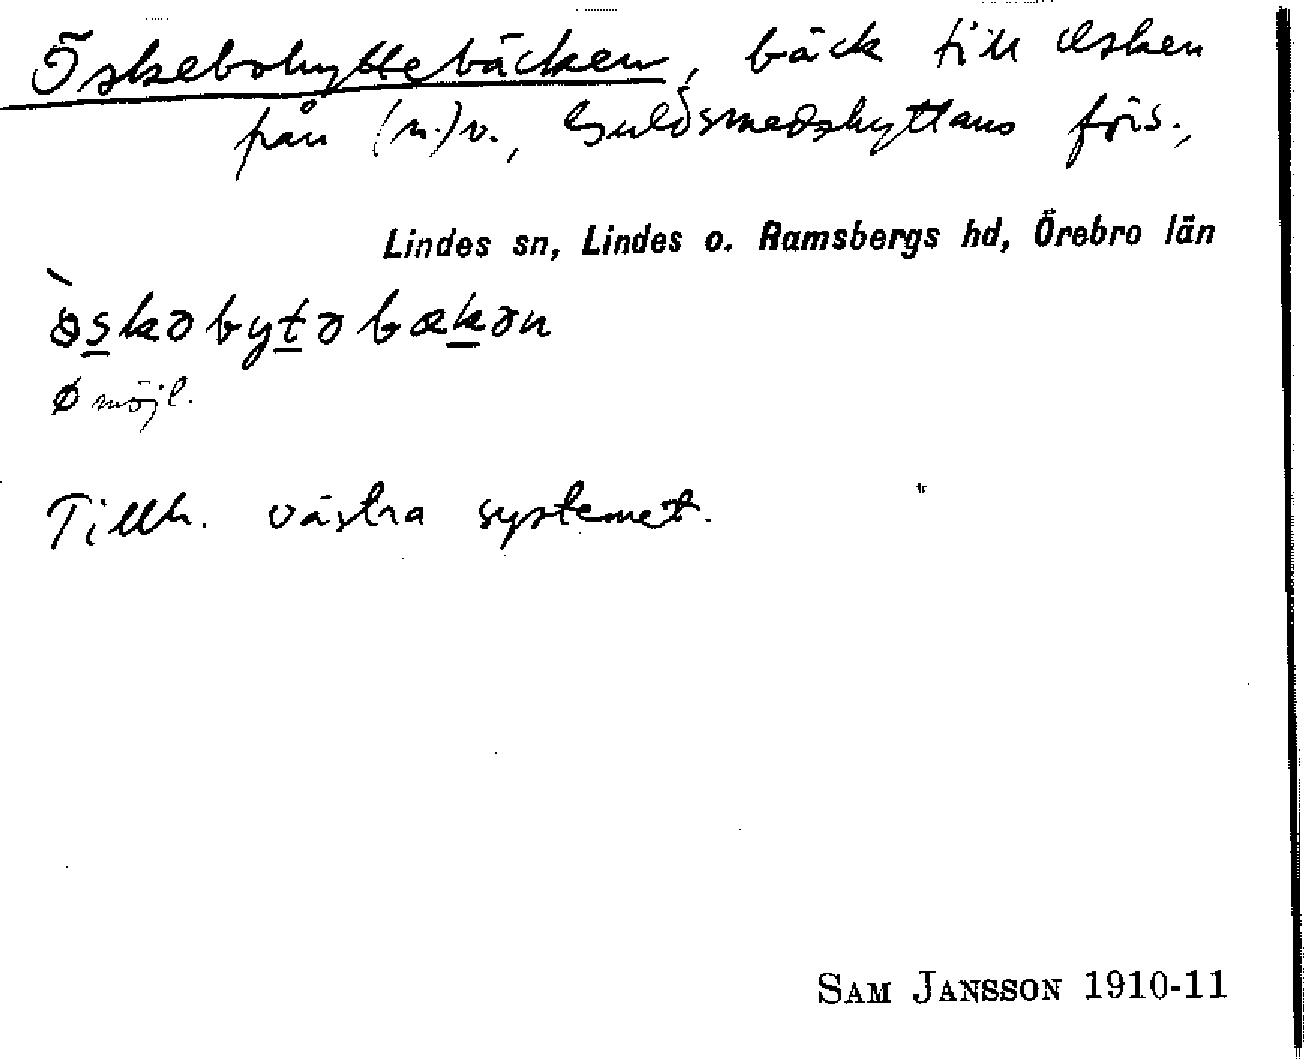 Öskebohyttebäcken, bäck till Usken
från (n.)v., Guldsmedshyttans förs.,
Lindes sn, Lindes o. Ramsbergs hd, Örebro län
ò̀skəbytəbækən
ø möjl.
Tillh. västra systemet.
SAM JANSSON 1910-11